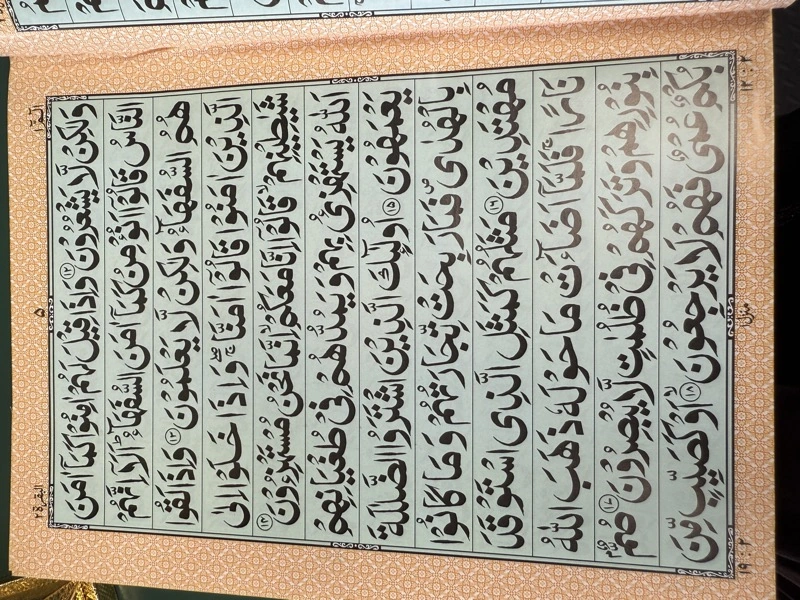 الٓمّٓ ١
٥
البقرة ٢
وَلٰكِنْ لَّا يَشْعُرُوْنَ ۝١٢ وَاِذَا قِيْلَ لَهُمْ اٰمِنُوْا كَمَآ اٰمَنَ
النَّاسُ قَالُوْٓا اَنُؤْمِنُ كَمَآ اٰمَنَ السُّفَهَآءُ ؕ اَلَآ اِنَّهُمْ
هُمُ السُّفَهَآءُ وَلٰكِنْ لَّا يَعْلَمُوْنَ ۝١٣ وَاِذَا لَقُوا
الَّذِيْنَ اٰمَنُوْا قَالُوْٓا اٰمَنَّا ۖۚ وَاِذَا خَلَوْا اِلٰى
شَيٰطِيْنِهِمْ ۙ قَالُوْٓا اِنَّا مَعَكُمْ ۙ اِنَّمَا نَحْنُ مُسْتَهْزِءُوْنَ ۝١٤
اَللّٰهُ يَسْتَهْزِئُ بِهِمْ وَيَمُدُّهُمْ فِيْ طُغْيَانِهِمْ
يَعْمَهُوْنَ ۝١٥ اُولٰٓئِكَ الَّذِيْنَ اشْتَرَوُا الضَّلٰلَةَ
بِالْهُدٰى ۪ فَمَا رَبِحَتْ تِّجَارَتُهُمْ وَمَا كَانُوْا
مُهْتَدِيْنَ ۝١٦ مَثَلُهُمْ كَمَثَلِ الَّذِى اسْتَوْقَدَ
نَارًا ۚ فَلَمَّآ اَضَآءَتْ مَا حَوْلَهٗ ذَهَبَ اللّٰهُ
بِنُوْرِهِمْ وَتَرَكَهُمْ فِيْ ظُلُمٰتٍ لَّا يُبْصِرُوْنَ ۝١٧ صُمٌّۢ
بُكْمٌ عُمْيٌ فَهُمْ لَا يَرْجِعُوْنَ ۝١٨ ۙ اَوْ كَصَيِّبٍ مِّنَ
١٢ : ٢
منزل ١
١٩ : ٢